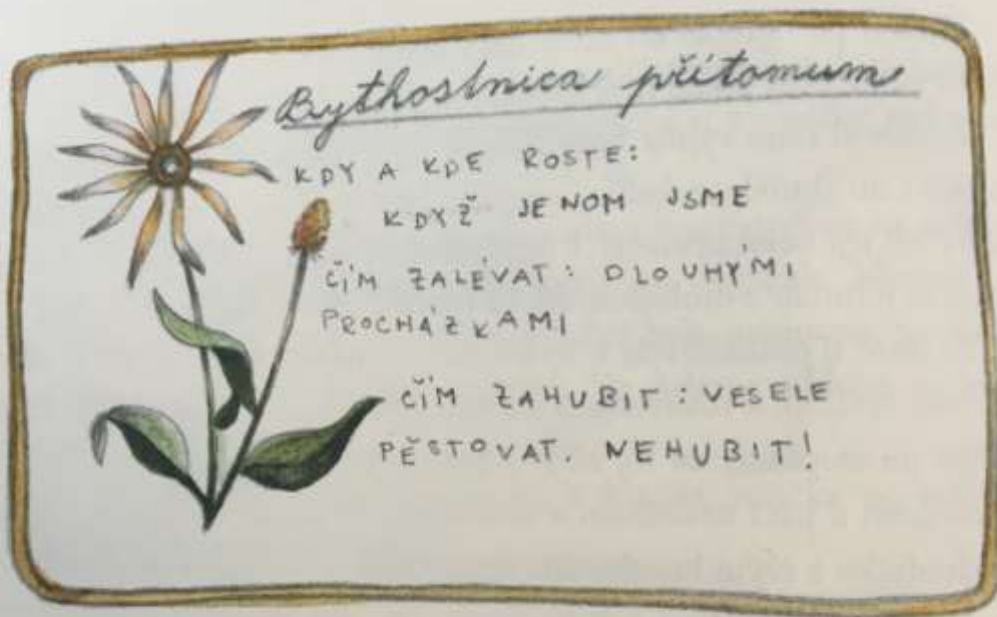 Bythostnica přítomum
KDY A KDE ROSTE:
KDYŽ JENOM JSME
ČÍM ZALÉVAT: DLOUHÝMI
PROCHÁZKAMI
ČÍM ZAHUBIT: VESELE
PĚSTOVAT. NEHUBIT!